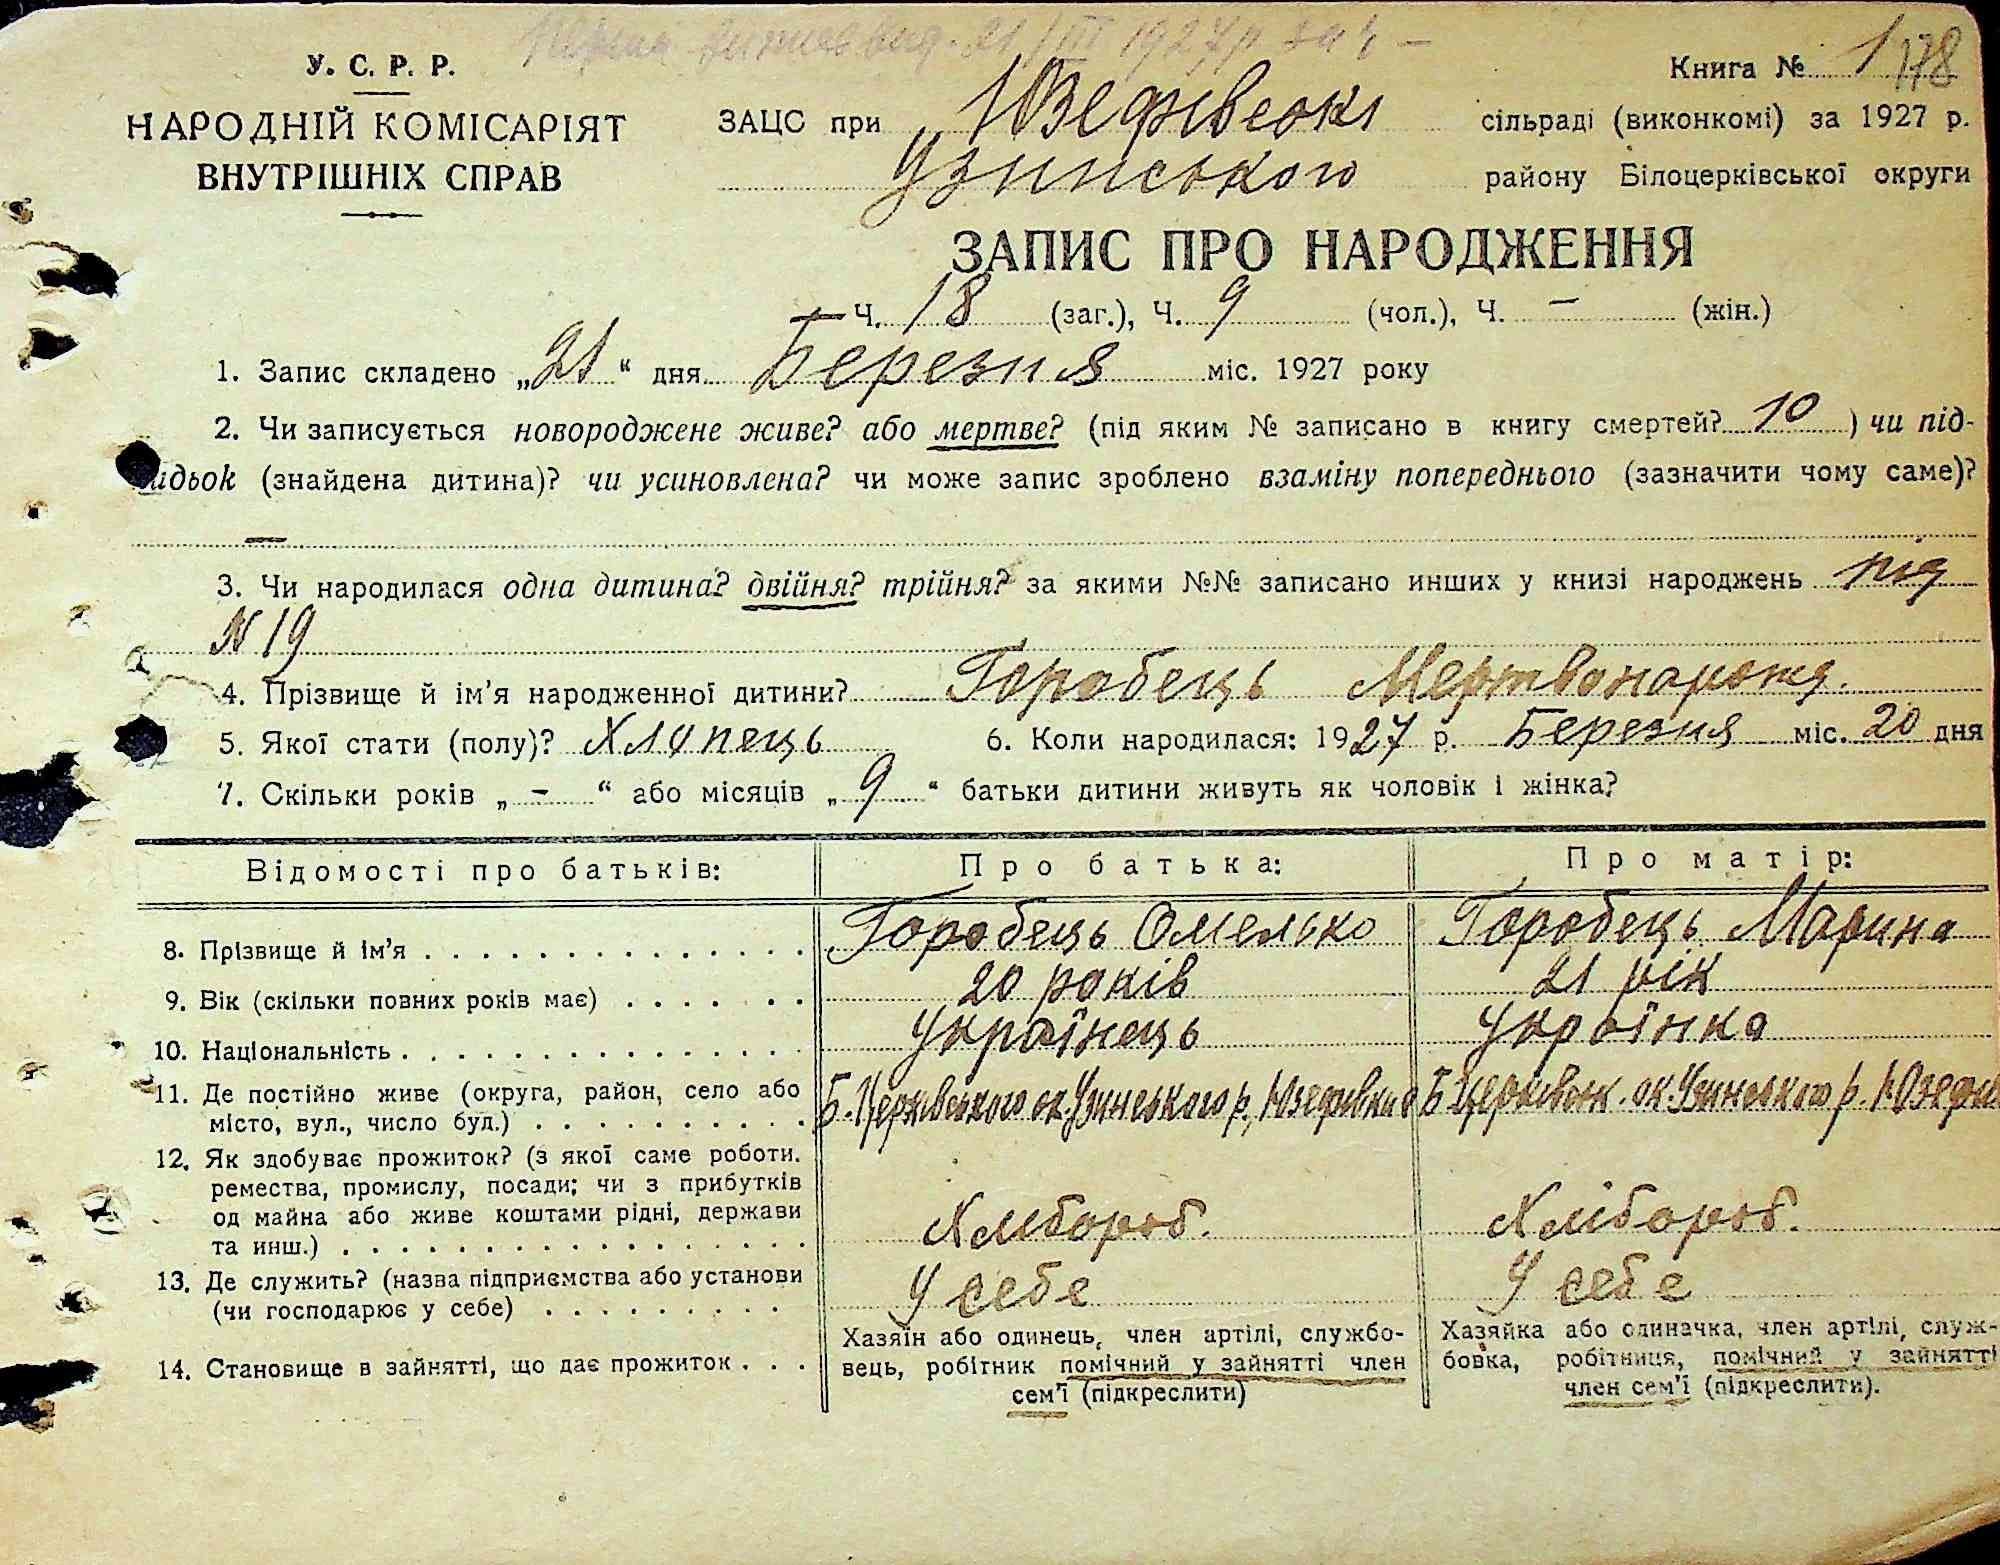 У. С. Р. Р.
НАРОДНІЙ КОМІСАРІЯТ
ВНУТРІШНІХ СПРАВ
21/III 1927 р.
Книга № 1 178
ЗАЦС при Юзефівські сільраді (виконкомі) за 1927 р.
Узинського району Білоцерківської округи
ЗАПИС ПРО НАРОДЖЕННЯ
Ч. 18 (заг.), Ч. 9 (чол.), Ч. — (жін.)
1. Запис складено „21“ дня Березня міс. 1927 року
2. Чи записується новороджене живе? або мертве? (під яким № записано в книгу смертей? 10 ) чи під-
идьок (знайдена дитина)? чи усиновлена? чи може запис зроблено взаміну попереднього (зазначити чому саме)?
—
3. Чи народилася одна дитина? двійня? трійня? за якими №№ записано инших у книзі народжень під
№ 19
4. Прізвище й ім’я народженної дитини? Горобець Мертвонарожд.
5. Якої стати (полу)? Хлопець 6. Коли народилася: 1927 р. Березня міс. 20 дня
7. Скільки років „ - “ або місяців „ 9 “ батьки дитини живуть як чоловік і жінка?
Відомості про батьків: Про батька: Про матір:
8. Прізвище й ім’я . . . . . . . . . . . . . . Горобець Омелько Горобець Марина
9. Вік (скільки повних років має) . . . . . . 20 років 21 рік
10. Національність . . . . . . . . . . . . . . . Українець Українка
11. Де постійно живе (округа, район, село або
місто, вул., число буд.) . . . . . . . . . . Б. Церківського ок. Узинського р., Юзефівка Б Церківськ. ок. Узинського р. Юзефів
12. Як здобуває прожиток? (з якої саме роботи.
ремества, промислу, посади; чи з прибутків
од майна або живе коштами рідні, держави
та инш.) . . . . . . . . . . . . . . . . . Хлібороб. Хлібороб.
13. Де служить? (назва підприємства або установи
(чи господарює у себе) . . . . . . . . . У себе У себе
14. Становище в зайнятті, що дає прожиток . . .
Хазяїн або одинець, член артілі, службо-
вець, робітник помічний у зайнятті член
сем’ї (підкреслити)
Хазяйка або одиначка, член артілі, служ-
бовка, робітниця, помічний у зайнятті
член сем’ї (підкреслити).